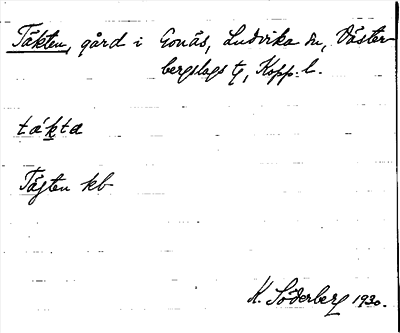 Täkten, gård i Gonäs, Ludvika sn, Väster-
bergslags tg, Kopp. l.
tákta
Tägten kb
K. Söderberg 1930.